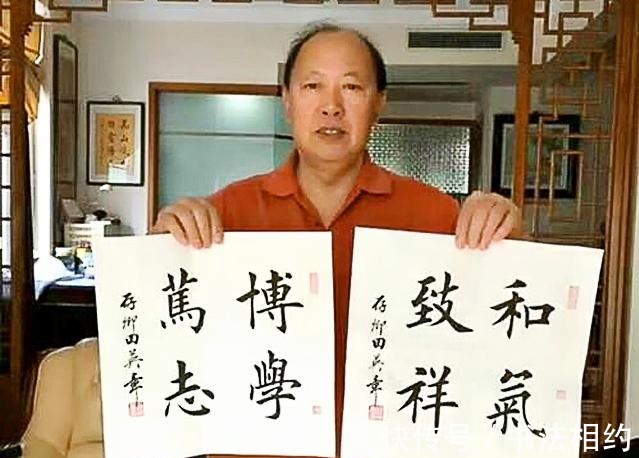 博學
篤志
存鄉田英章
和氣
致祥
存鄉田英章
快传号 / 书法相约